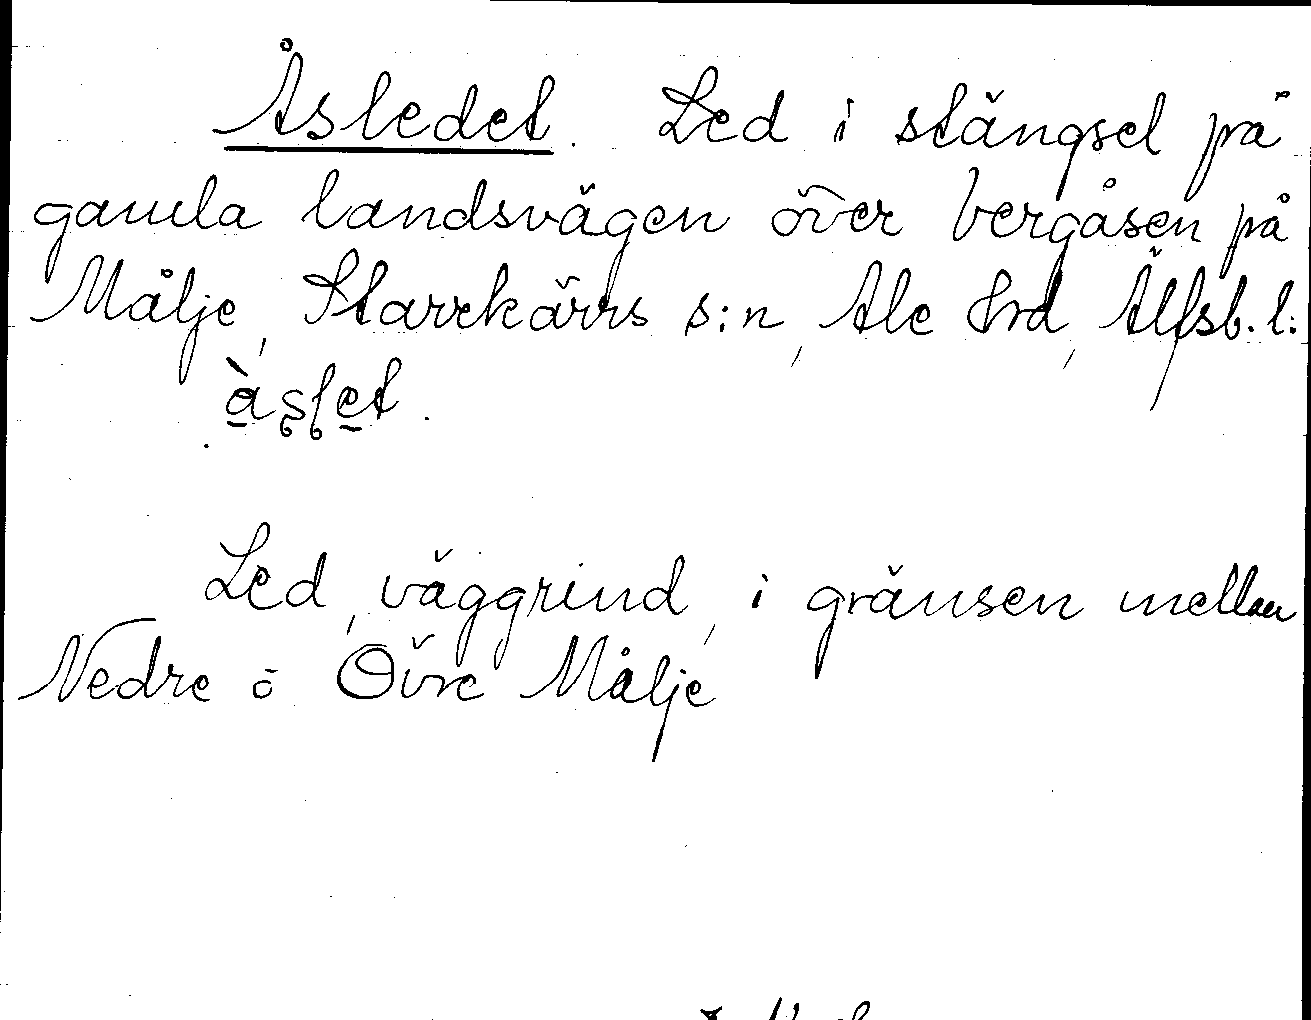 Åsledet. Led i stängsel på
gamla landsvägen över bergåsen på
Målje, Starrkärrs s:n, Ale hrd, Älfsb. l:
àslet.
Led, väggrind, i gränsen mellan
Nedre o Övre Målje